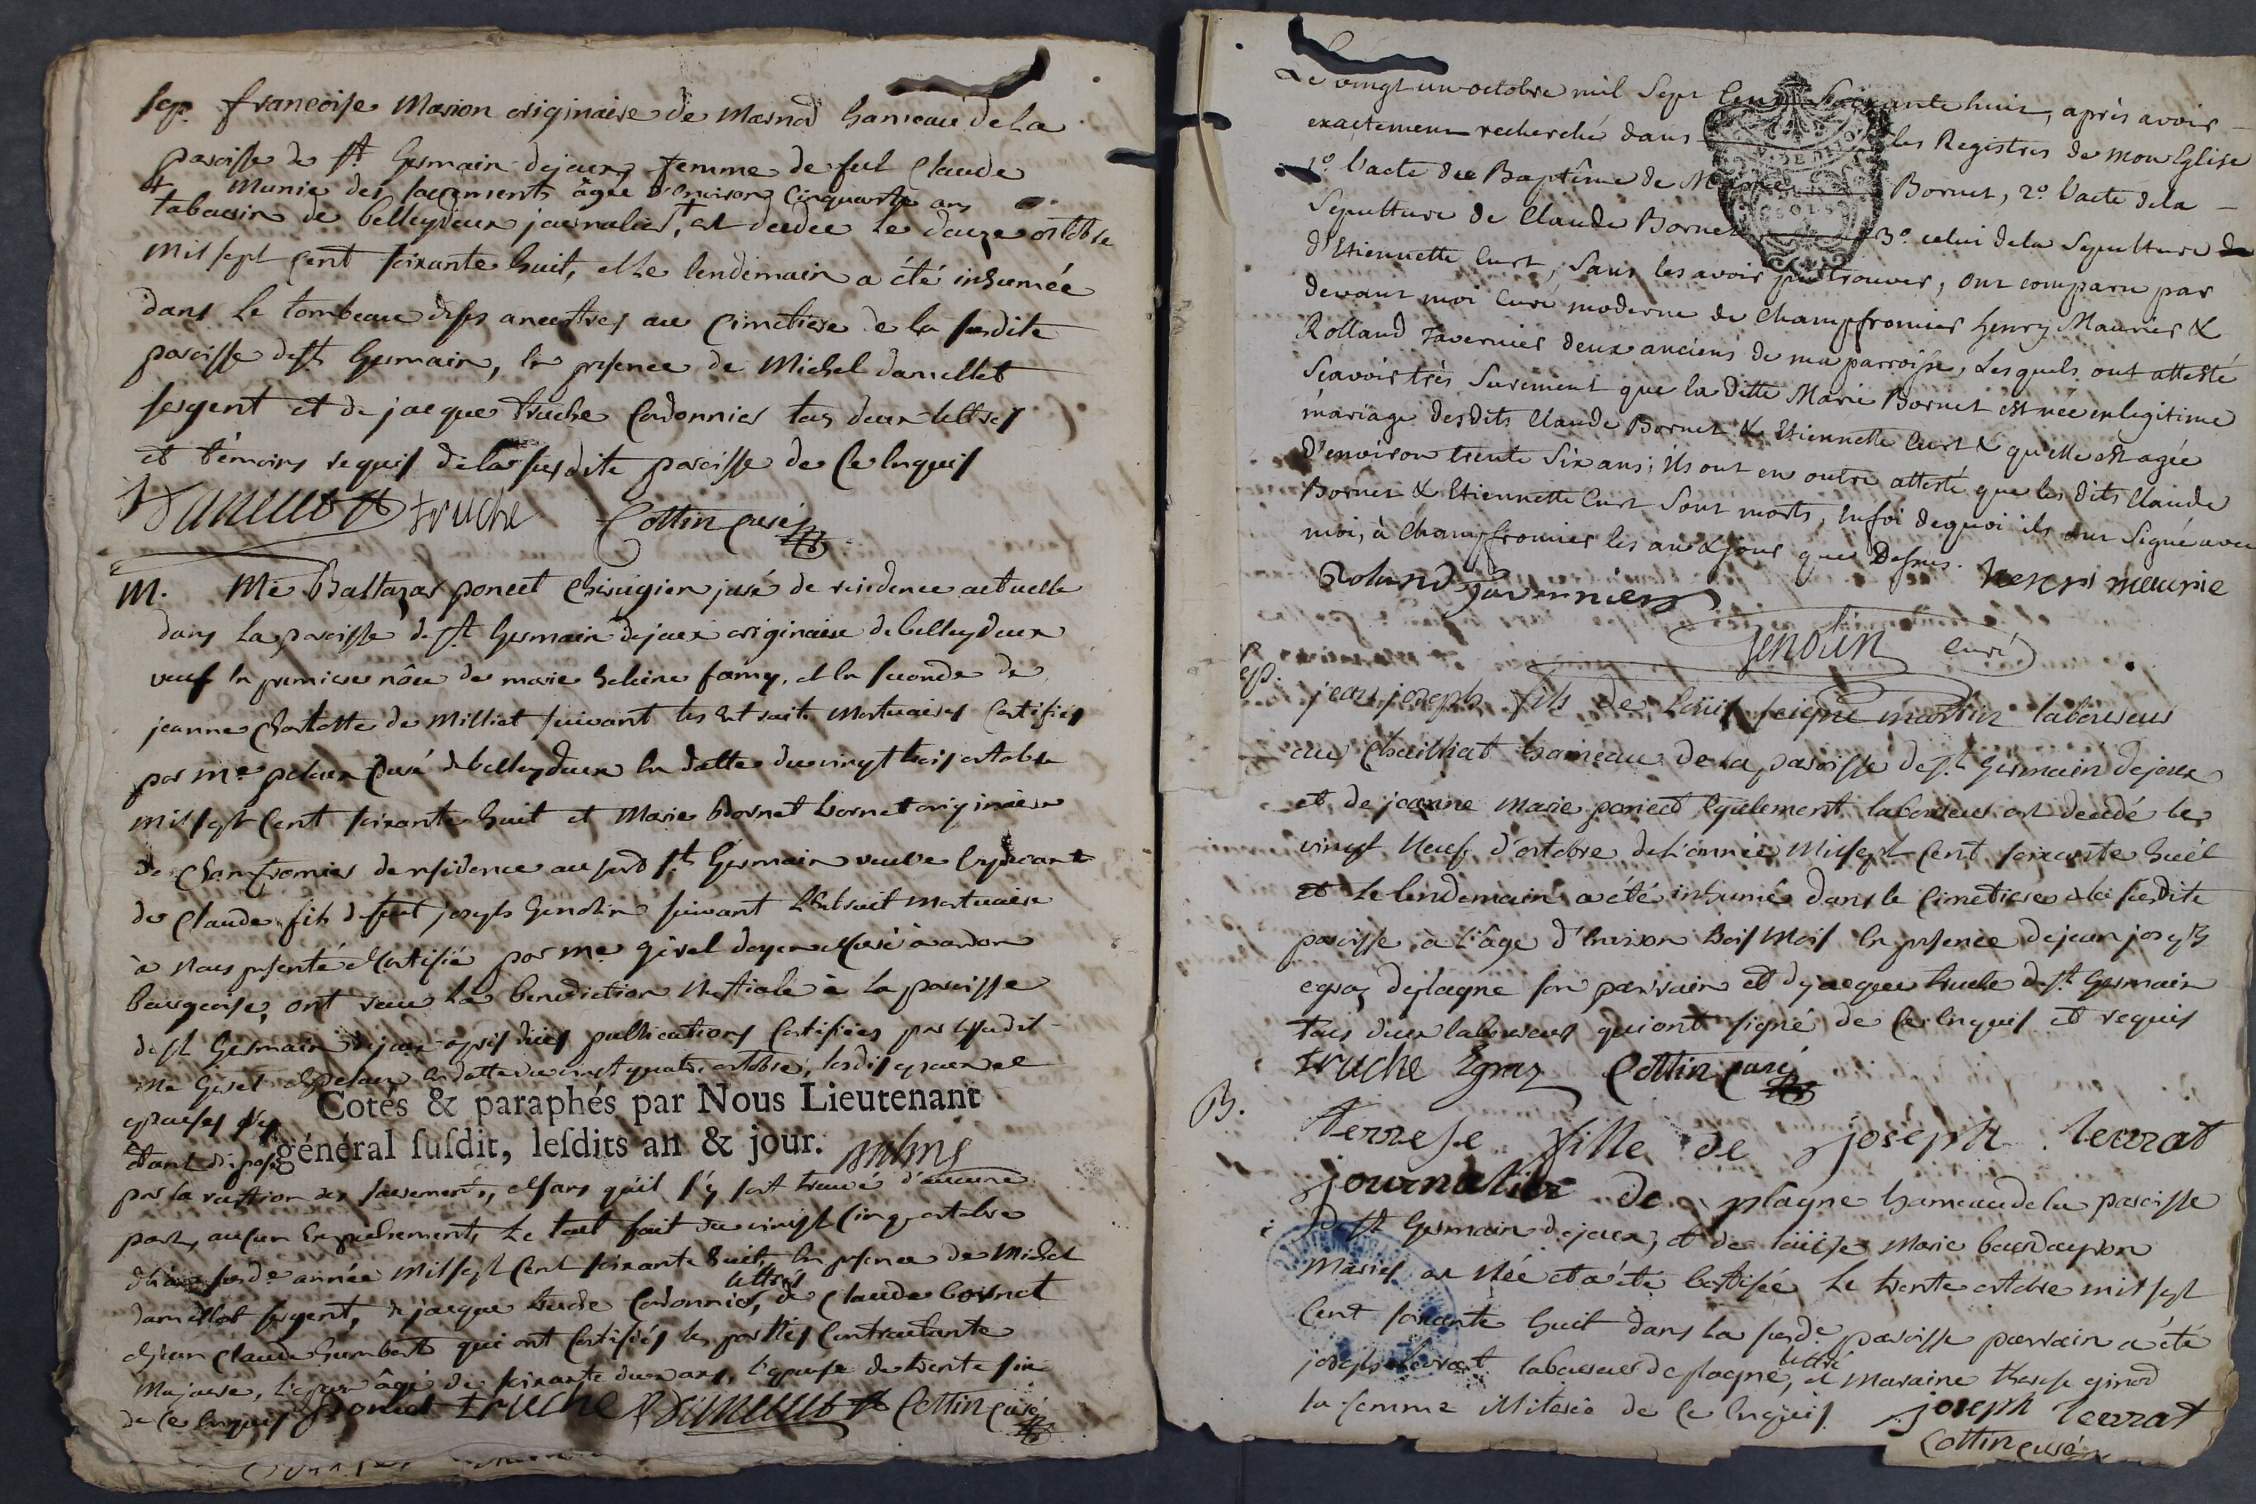 sep. francoise Marion originaire de Marnod hameau de la
paroisse de st Germain dejoux, femme de feu Claude
+ Munie des sacrements âgée d'environ Cinquante ans
tabourin de belleydoux journalier,+ est decedee le douze octobre
mil sept cent soixante huit, et le lendemain a été inhumée
dans le tombeau de ses ancestres au Cimetiere de la susdite
paroisse de st Germain, en presence de Michel danellet
sergent et de jacque truche Cordonnier tous deux lettres
et témoins requis de la susdite paroisse de ce enquis
truche Cottin curé
M. Me Baltazar poncet Chirugien juré de residence actuelle
dans la paroisse de st Germain dejoux originaire de belleydoux
veuf en premiere nôce de marie heleine famy, et en seconde de
jeanne Charlotte de Milliet suivant les Extraits Mortuaires Certifiés
par me curé de belleydoux en datte du vingt trois octobre
mil sept Cent soixante huit et Marie Bornet originaire
de Chanfromier de residence au susd st Germain veuve
de Claude fils de feu joseph Genolin suivant l'Extrait Mortuaire
à nous presenté et Certifié par me girel doyen et curé à
ont receu la benediction Nuptiale à la paroisse
de st Germain dejoux apres publications Certifiées par lesudit
me girel et en datte du vingt quatre octobre, lesdis epoux et
epouses s'y
Cotés & paraphés par Nous Lieutenant
général susdit, lesdits an & jour.
étant disposé
par la reception des sacrements, et sans qu'il s'y soit trouvé d'aucune
part, aucun Empechement, Le tout fait du vingt Cinq octobre
susde année mil sept Cent soixante huit, en presence de Michel
lettrés
danellet sergent, de jacque truche Cordonnier, de Claude bornet
et jean Claude humbert qui ont Certifiés les parties Contractante
Majeure, l'epoux âgé de soixante deux ans, l'epouse de trente six
de ce enquis poncet truche Cottin curé
Le vingt un octobre mil Sept Cent Soixante huit, après avoir
exactement recherché dans les Registres de mon Eglise
1o. l'acte de Baptême de Marie Bornet, 2o. l'acte dela
Sepulture de Claude Bornet 3o. celui dela Sepulture
d'Etiennette Curt, sans les avoir pu trouver, ont comparu par
devant moi Curé moderne de Champfromier Henry Maurier &
Rolland Tavernier deux anciens de ma parroisse, Lesquels ont attesté
Sçavoir très Surement que la ditte Marie Bornet est née en legitime
mariage desdits Claude Bornet & Etiennette Curt & qu'elle est agée
D'environ trente Six ans; ils ont en outre attesté que les dits Claude
Bornet & Etiennette Curt Sont morts, En foi dequoi ils ont Signé avec
moi, à Champfromier les an & jour que Dessus.
Roland Taverniers henri meurie
genolin curé
sep. jean joseph fils de Loüis seigne martin laboureur
au Chailliat hameau de la paroisse de st Germain dejoux
et de jeanne Marie poncet Egalement laboureur est decedé le
vingt Neuf d'octobre de l'année Mil sept Cent soixante huit
et le lendemain a été inhumé dans le Cimetiere de la susdite
paroisse à l'âge d'environ trois Mois en presence de jean joseph
egraz de plagne son parrain et de jacque truche de st Germain
tous deux laboureurs qui ont signé de ce Enquis et requis
truche Egraz Cottin curé
B. Terrese fille de joseph levrat
journalier de plagne hameau de la paroisse
de st Germain dejoux, et de loüise Marie
Mariés est Née et a été batisée le trente octobre mil sept
Cent soixante huit dans la susde paroisse parrain a été
lettré
joseph levrat laboureur de plagne, et Maraine therese ginod
sa femme illiterée de ce Enquis joseph levrat
Cottin curé